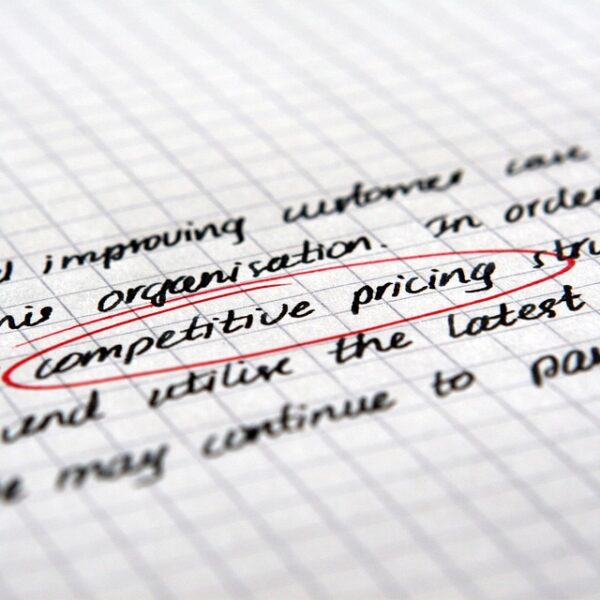 improving customer care
this organisation. In order
competitive pricing stru
and utilise the latest
may continue to pa